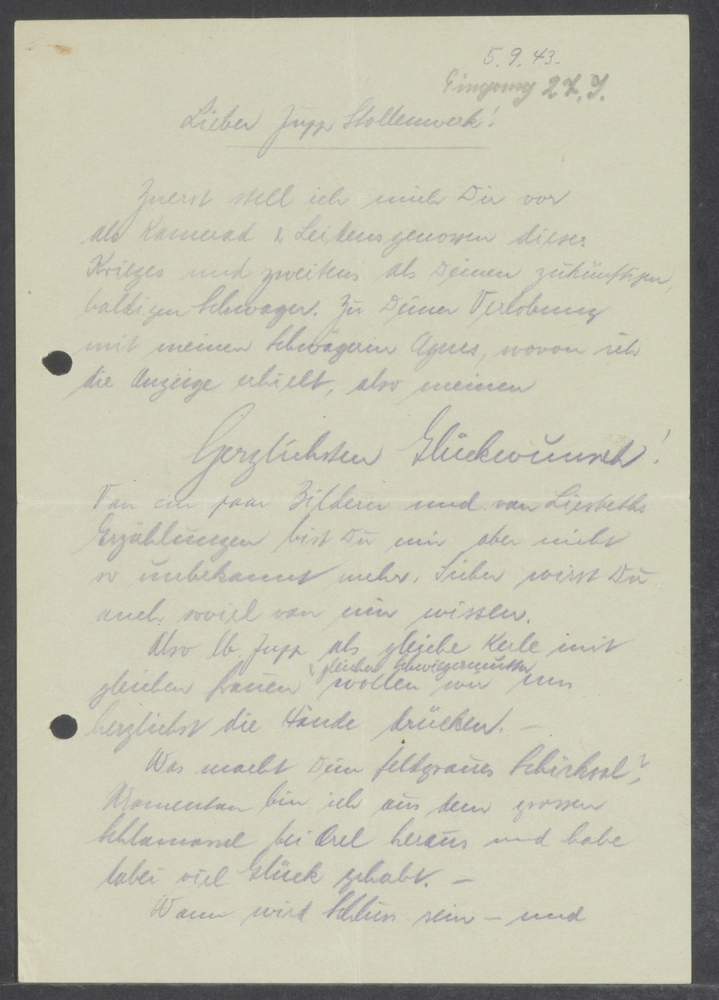 5. 9. 43.
Eingang 27. 9.
Lieber Jupp Stollenwerk!
Zuerst stell ich mich Dir vor
als Kamerad & Leidensgenossen dieses
Krieges und zweitens als Deinen zukünftigen,
baldigen Schwager. Zu Deiner Verlobung
mit meiner Schwägerin Agnes, wovon ich
die Anzeige erhielt, also meinen
Herzlichsten Glückwunsch!
Von ein paar Bildern und von Liesbeths
Erzählungen bist Du mir aber nicht
so unbekannt mehr. Sicher wirst Du
auch soviel von mir wissen.
Also lb. Jupp als gleiche Kerle mit
& gleicher Schwiegermutter
gleichen Frauen wollen wir uns
herzlichst die Hände drücken. –
Was macht Dein feldgraues Schicksal?
Momentan bin ich aus dem grossen
Schlamassel bei Orel heraus und habe
dabei viel Glück gehabt. –
Wann wird Schluss sein – und